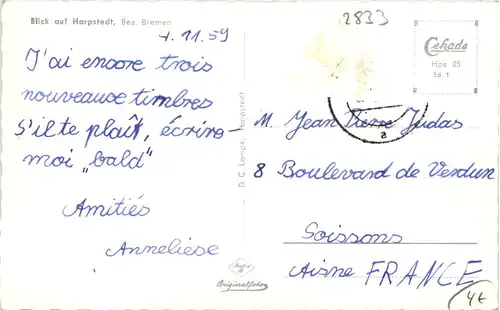 Blick auf Harpstedt, Bez. Bremen
4.11.59
J'ai encore trois
nouveause timbres
S'il te plaît, écrire-
moi „bald"
Amitiés
Anneliese
D. C. Lange, Harpstedt
Originalfoto
2833
Cekade
Hps 05
58 1
a
M. Jean Pierre Judas
8 Boulevard de Verdun
Soissons
Aisne FRANCE
4€